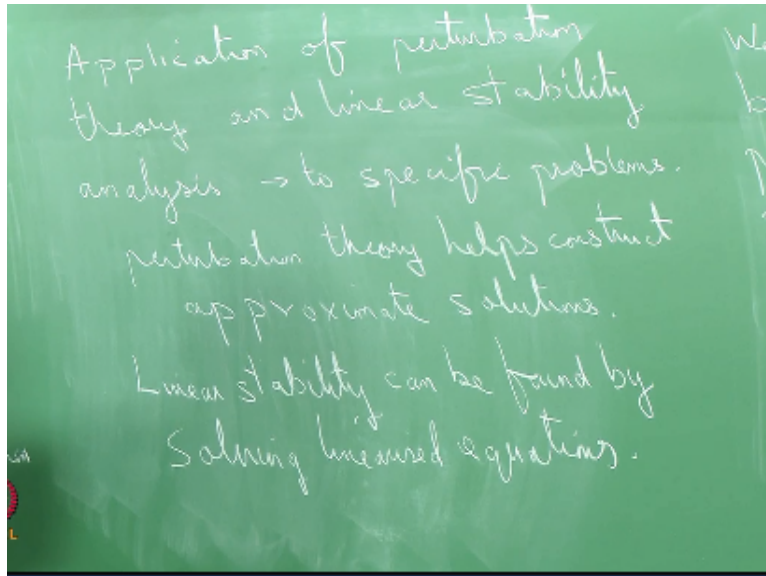 Application of perturbation
theory and linear stability
analysis → to specific problems.
perturbation theory helps construct
approximate solutions.
Linear stability can be found by
Solving linearised equations.